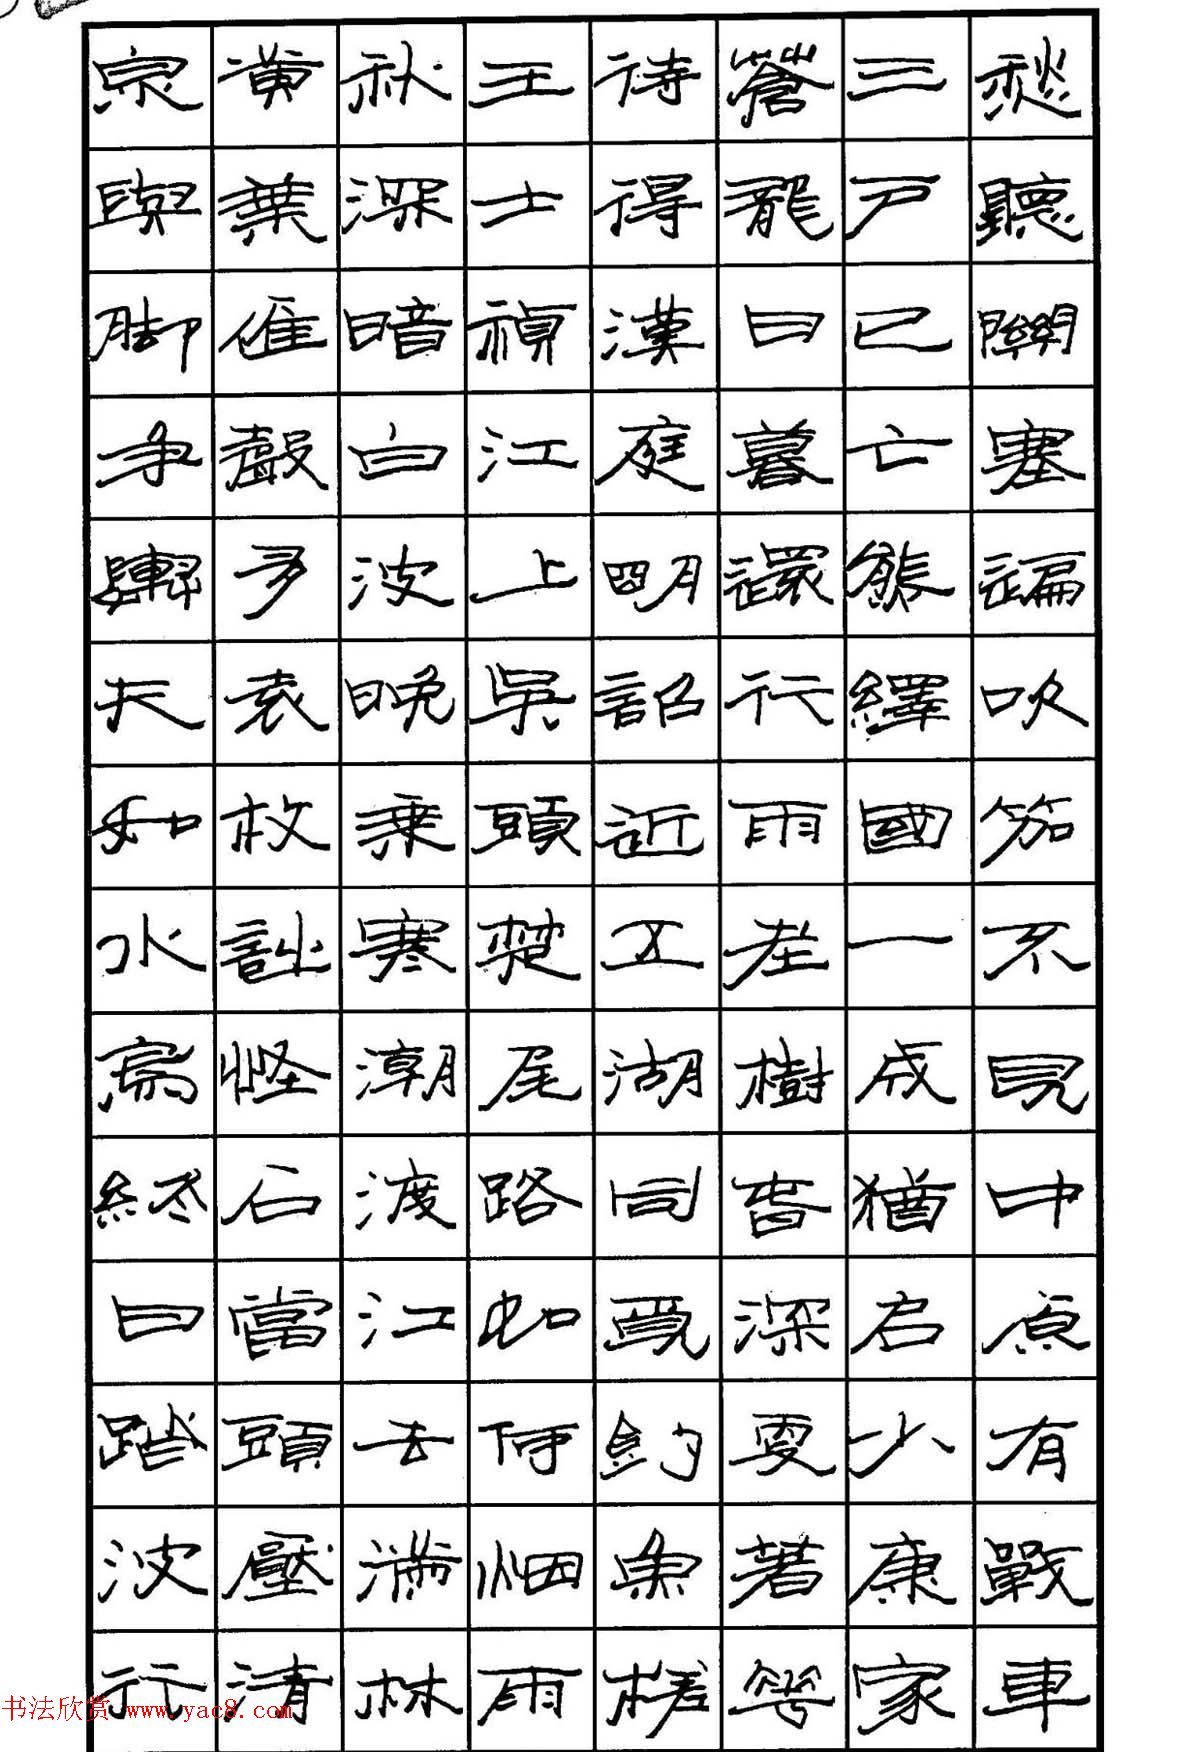 愁聽關塞遍吹笳不見中原有戰車
三戶已亡熊繹國一成猶啟少康家
蒼龍日暮還行雨老樹春深更著花
待得漢庭明詔近五湖同覓釣魚槎
王士禎江上吳頭楚尾路如何烟雨
秋深暗白波晚乘寒潮渡江去滿林
黄葉雁聲多袁枚詠怪石當頭壓清
泉與脚争輿夫如水鳥終日踏波行
书法欣赏 www.yac8.com